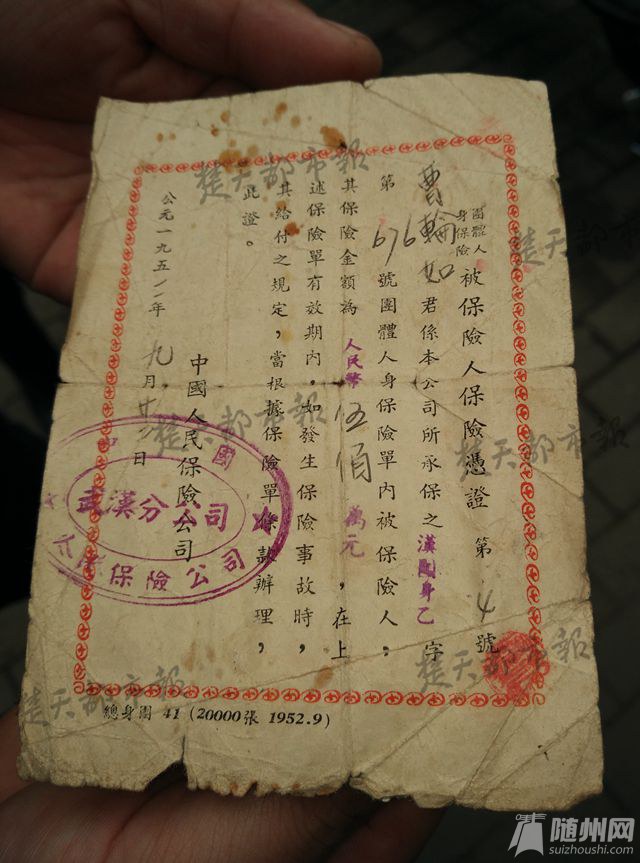 團體人身保險 被保險人保險憑證 第 4 號
曹輪如 君係本公司所承保之 漢團身乙 字
第 676 號團體人身保險單內被保險人，
其保險金額為 人民幣 伍佰 萬元 ，在上
述保險單有效期內，如發生保險事故時，
其給付之規定，當根據保險單條款辦理，
此證。
中國人民保險公司
公元一九五 年 九 月 日
武漢分公司
保險公司
總身團 41 (20000張 1952.9)
楚天都市報
楚天都市報
楚天都市報
楚天都市報
楚天都市報
楚天都市報
随州网
suizhoushi.com